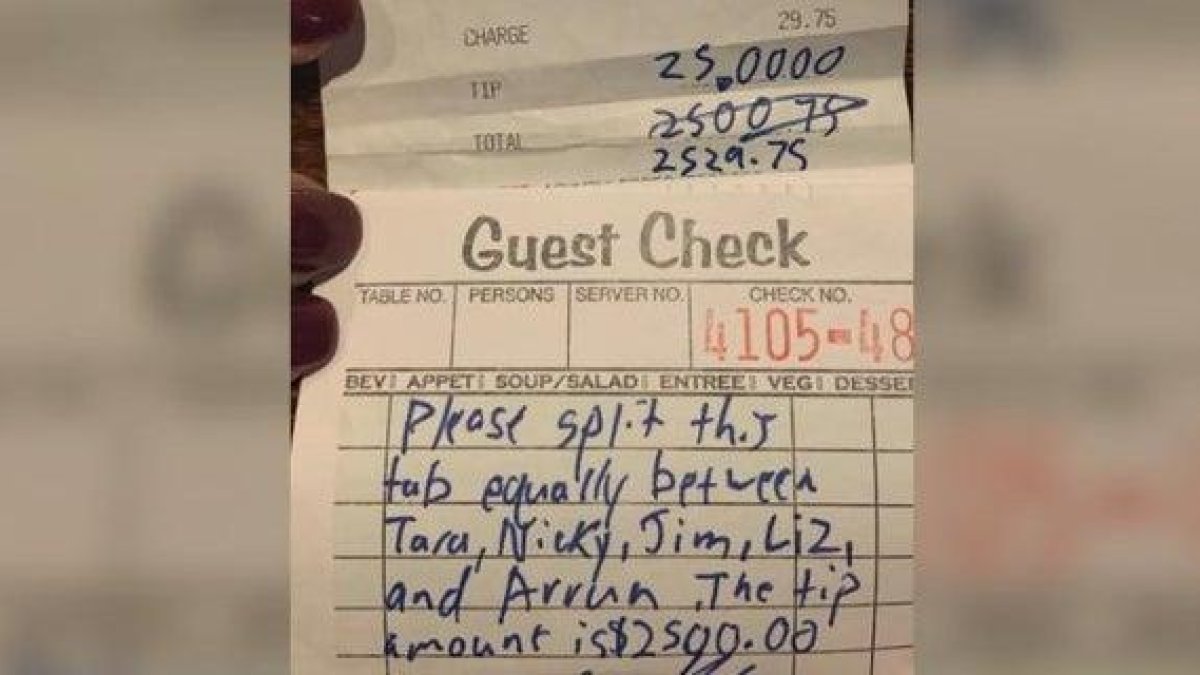 CHARGE 29.75
TIP 25.0000
2500.75
TOTAL 2529.75
Guest Check
TABLE NO. PERSONS SERVER NO. CHECK NO.
4105-48
BEV APPET SOUP/SALAD ENTREE VEG DESSE
Please split this
tab equally between
Tara, Nicky, Jim, Liz,
and Arrun. The tip
amount is $2500.00